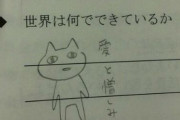 ◆世界は何でできているか
愛と憎しみ